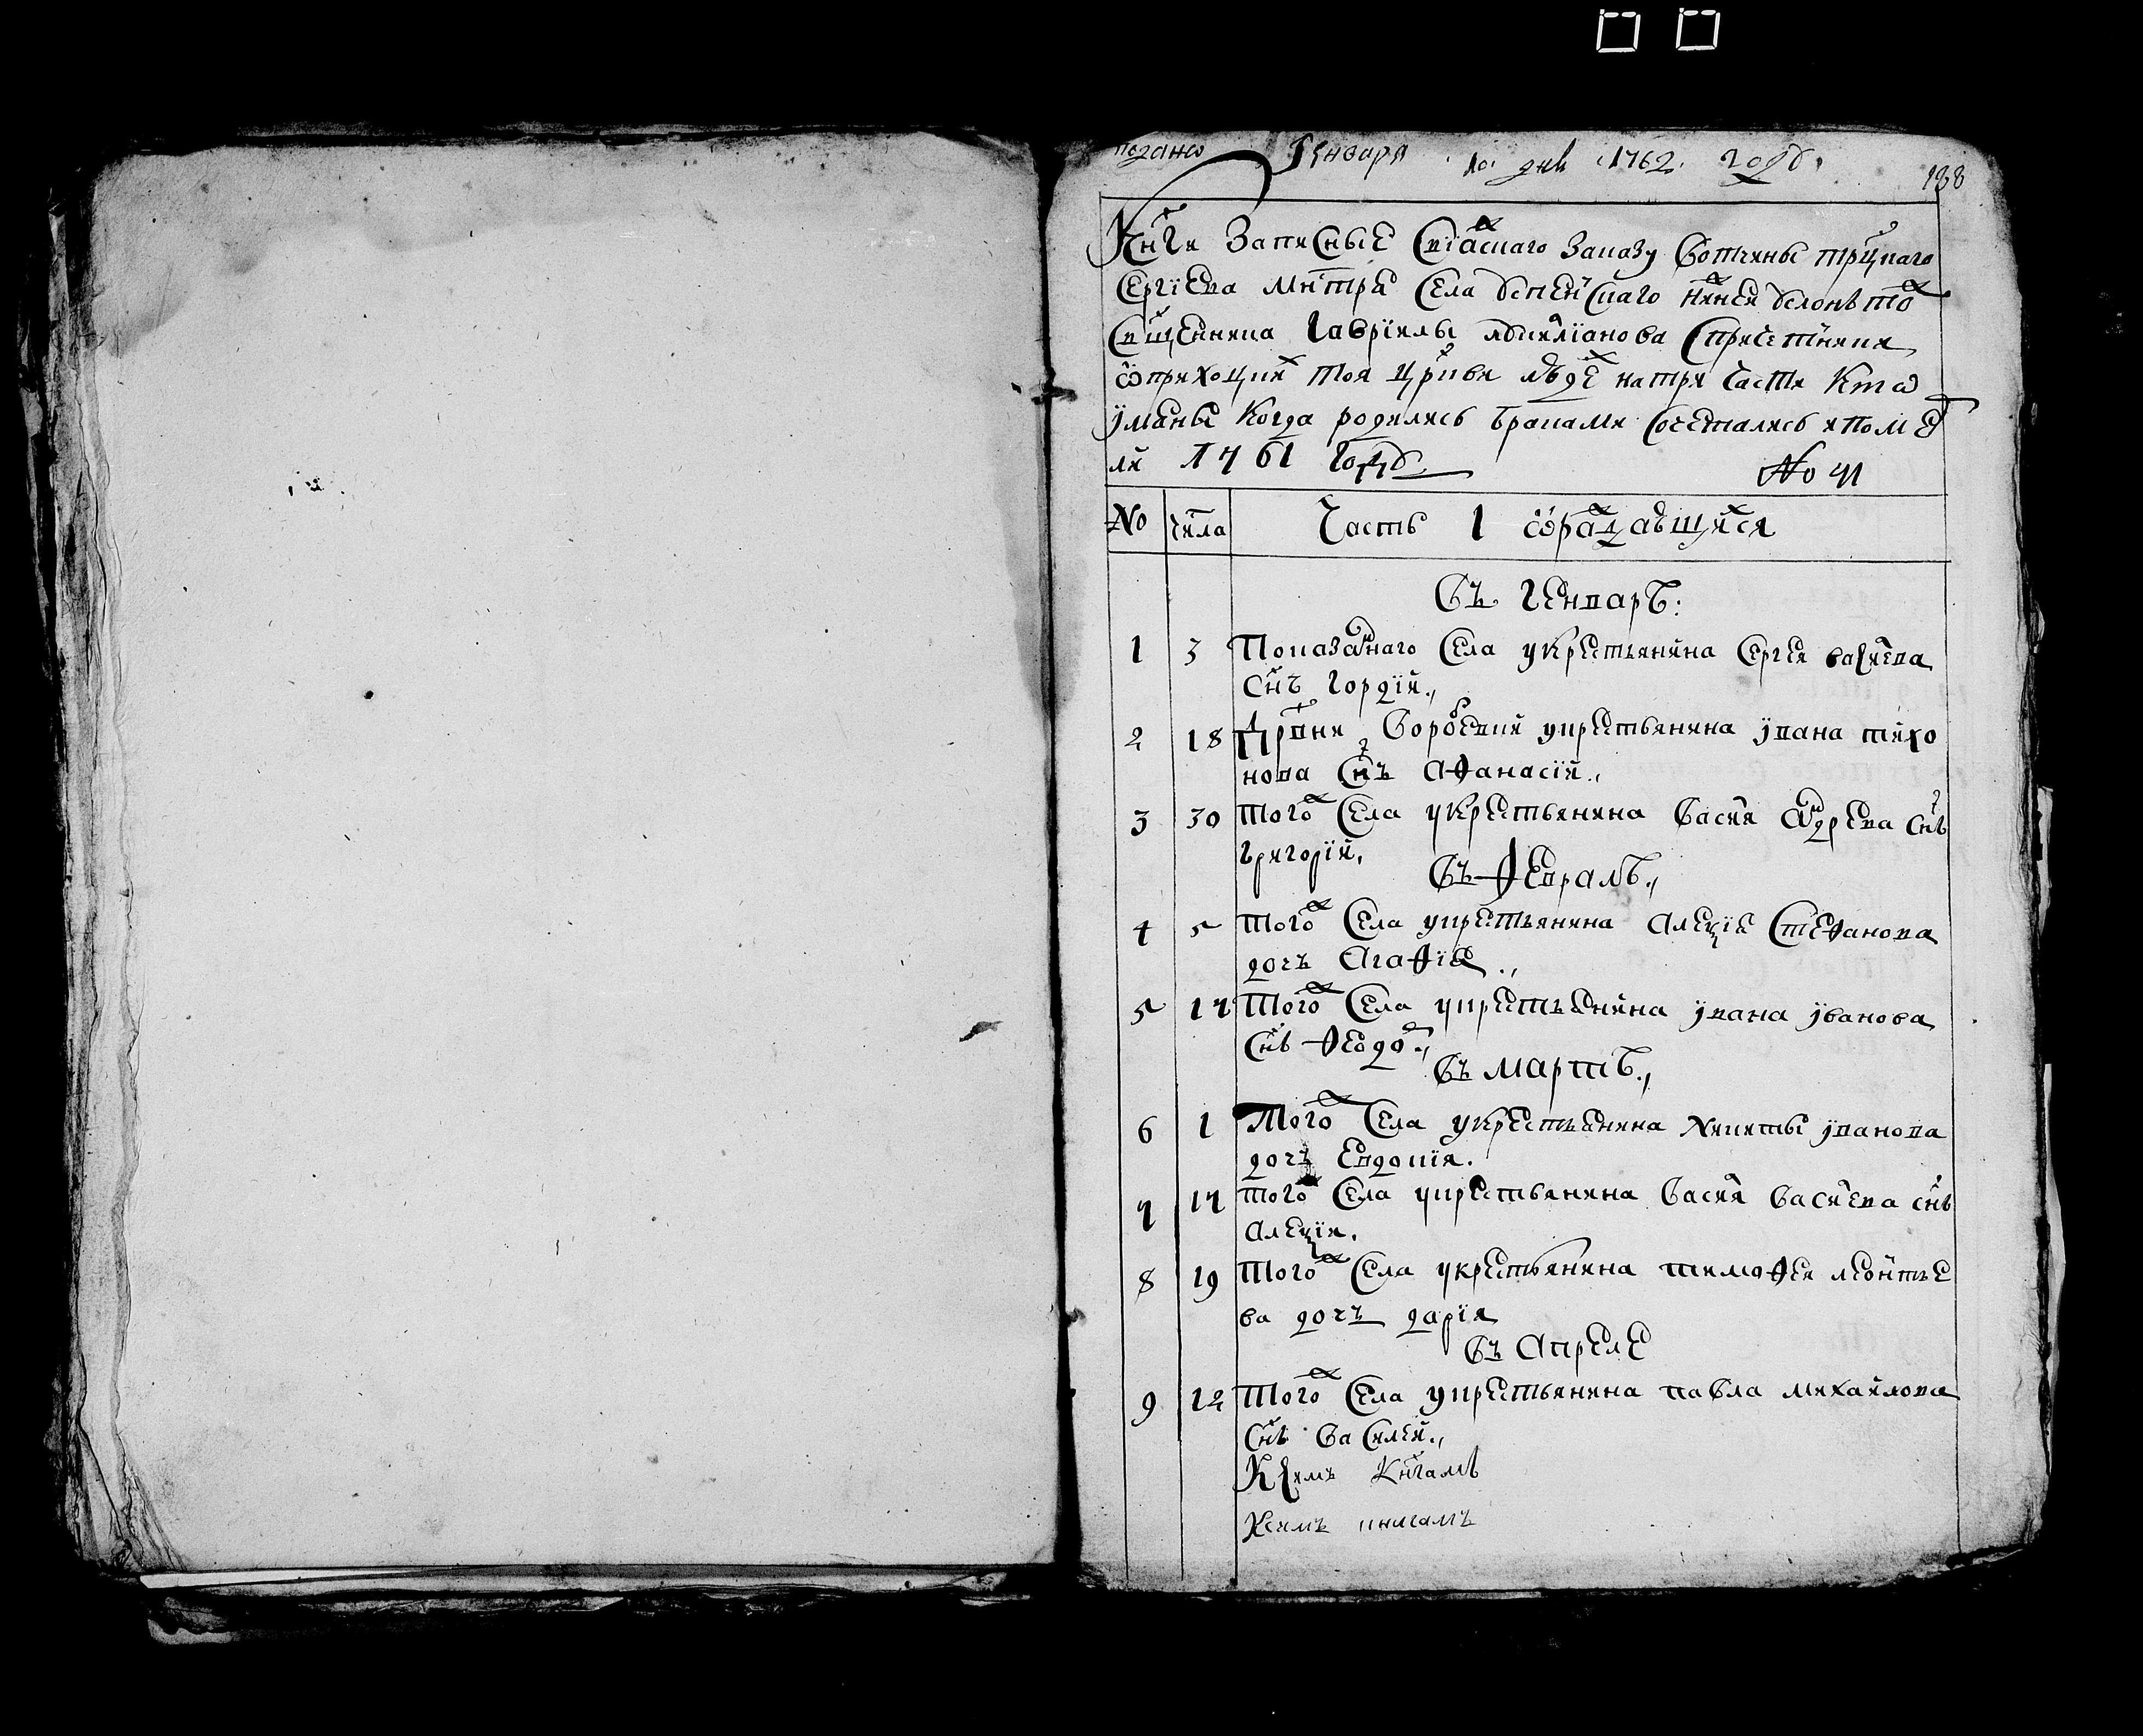 подано Генваря 10 дня 1762 году
188
Книги Записные Свіяскаго Заказу Вотчины трцкаго
Сергіева мнтря Села Успенскаго
Сщенника Гавріилы с причетники
ѡ приходцких тоя цркви людех на три части кто
имяны когда родились браками Сочетались и поме
ли 1761 году
No 41
No числа Часть 1 ѡ раждавшихся
Въ Генваръ:
1 3 Показаннаго Села у крестьянина Сергея васиева
Снъ Гордій.,
2 18 Дрвни у крестьянина Ивана тихо
нова Снъ Афанасій.,
3 30 того Села у крестьянина Васия Андреева Снъ
Григорій.
Въ Февралъ.,
4 5 того Села у крестьянина Алекціе Стефанова
дочъ Агафіа.,
5 17 того Села у крестьянина Ивана Иванова
Снъ Феодор.,
Въ Мартъ.,
6 1 Того Села у крестьянина Никиты Иванова
дочъ Евдокія.
7 17 того Села у крестьянина Васия Васиева снъ
Алекціи.
8 19 того Села у крестьянина тимофея леонтье
ва дочъ дарія
Въ Апреле
9 12 того Села у крестьянина павла михаилова
Снъ Василей.,
К сим Кнгамъ
К симъ книгамъ